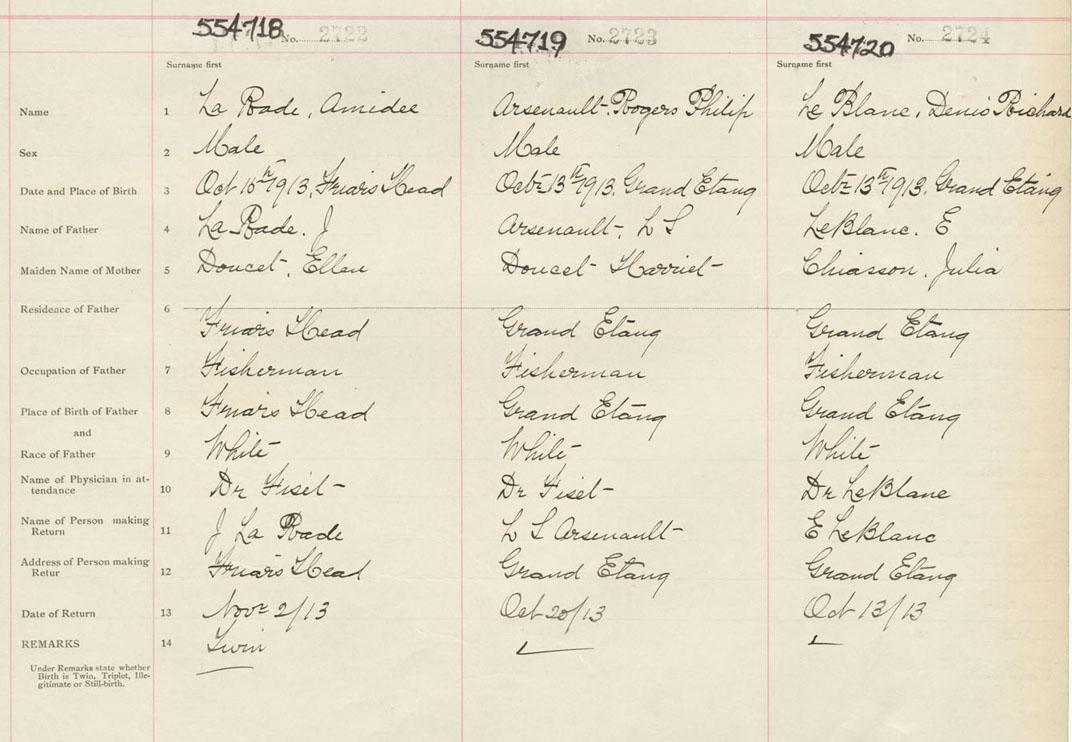 554718 No. 2722 554719 No. 2723 554720 No. 2724
Surname first Surname first Surname first
Name 1 La Rade, Amidee Arsenault, Rogers Philip Le Blanc, Denis Richard
Sex 2 Male Male Male
Date and Place of Birth 3 Oct 1913, Friars Head Octr 13th 1913, Grand Etang Octr 13th 1913, Grand Etang
Name of Father 4 La Rade. J Arsenault, L S LeBlanc. E
Maiden Name of Mother 5 Doucet, Ellen Doucet Harriet Chiasson, Julia
Residence of Father 6
Friars Head Grand Etang Grand Etang
Occupation of Father 7 Fisherman Fisherman Fisherman
Place of Birth of Father 8 Friars Head Grand Etang Grand Etang
and
Race of Father 9 White White White
Name of Physician in at-
tendance 10 Dr Fiset Dr Fiset Dr LeBlanc
Name of Person making
Return 11 J La Rade L S Arsenault E LeBlanc
Address of Person making
Retur 12 Friars Head Grand Etang Grand Etang
Date of Return 13 Novr 2/13 Oct 20/13 Oct 13/13
REMARKS 14 Twin
Under Remarks state whether
Birth is Twin, Triplet, Ille-
gitimate or Still-birth.